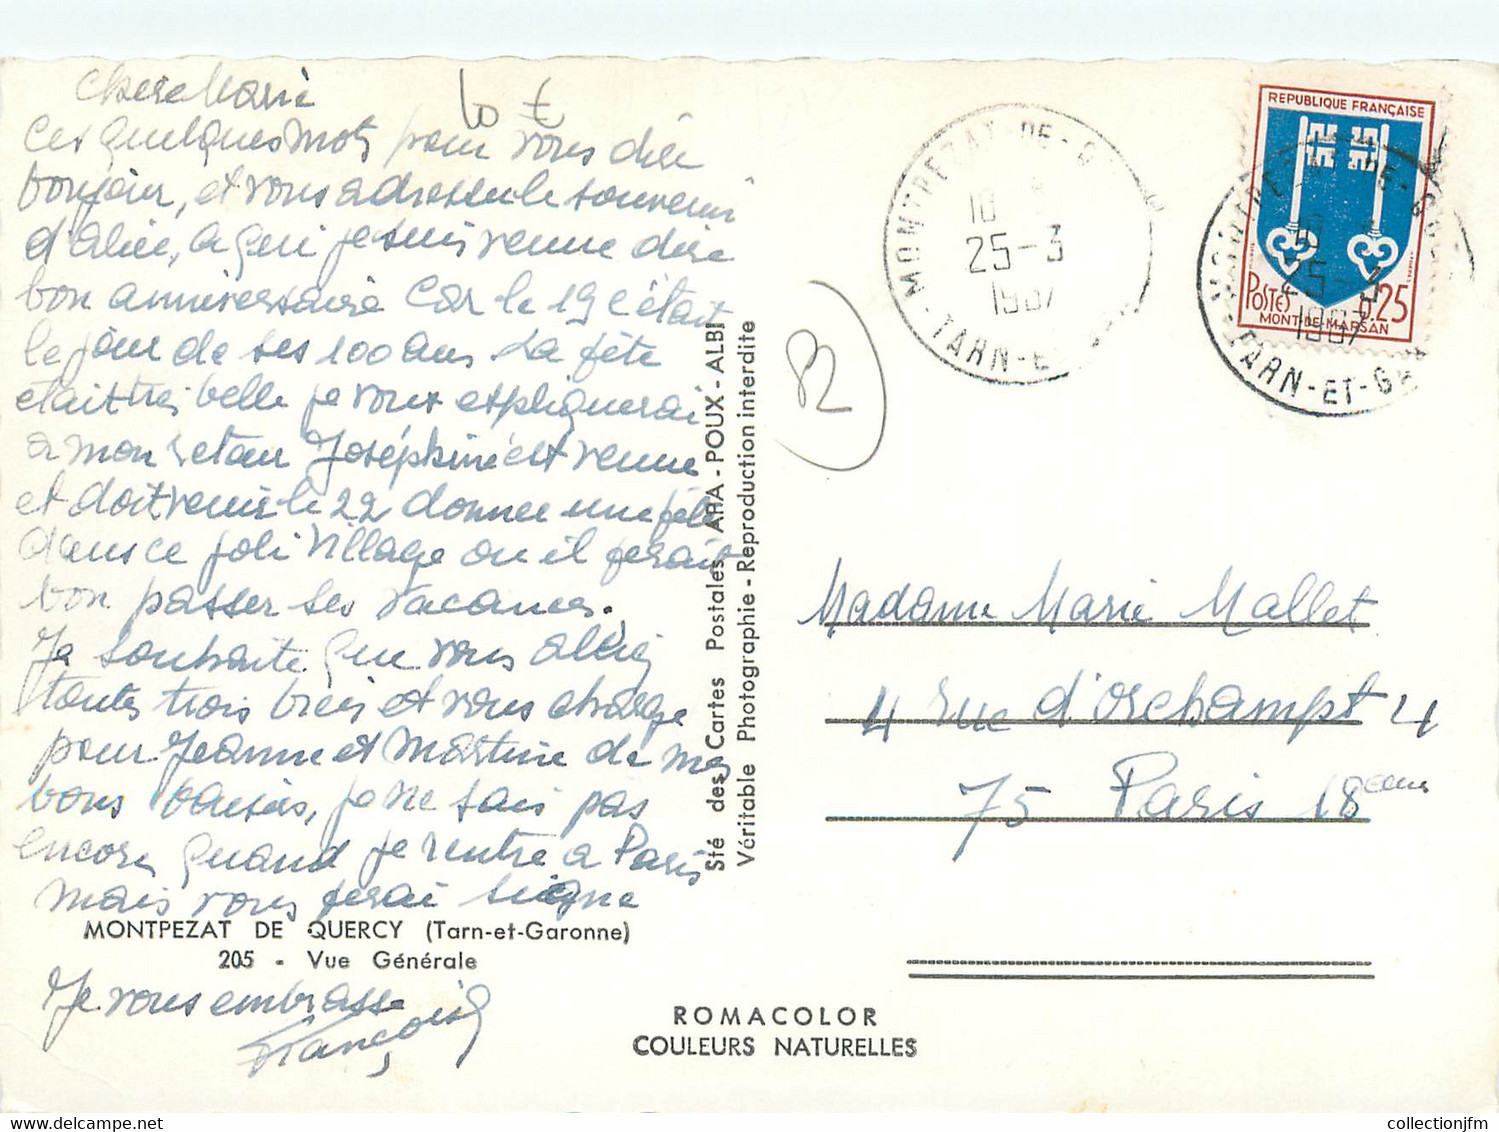 Chere Marie
10 €
Ces quelques mots pour vous dire
bonjour, et vous adresser le souvenir
d'Alice, a qui je suis venue dire
bon anniversaire Car le 19 c'était
le jour de ses 100 ans La fête
etait tres belle je vous expliquerai
a mon retour Joséphine est venue
et doit venir le 22 donner une fête
dans ce joli village ou il ferait
bon passer ses vacances.
Je souhaite que vous alliez
toutes trois bien et vous charge
pour Jeanne et Martine de mes
bons baisers, je ne sais pas
encore quand je rentre a Paris
mais vous ferai signe
MONTPEZAT DE QUERCY (Tarn-et-Garonne)
205 - Vue Générale
Je vous embrasse
Françoise
Sté des Cartes Postales APA - POUX - ALBI
Véritable Photographie - Reproduction interdite
ROMACOLOR
COULEURS NATURELLES
82
MONTPEZAT-DE-Q
25-3
1967
TARN-E
REPUBLIQUE FRANÇAISE
POSTES 0,25
MONT-DE-MARSAN
25-3
1967
TARN-ET-GA
Madame Marie Mallet
4 rue d'Orchampt 4
75 Paris 18eme
www.delcampe.net
collectionjfm